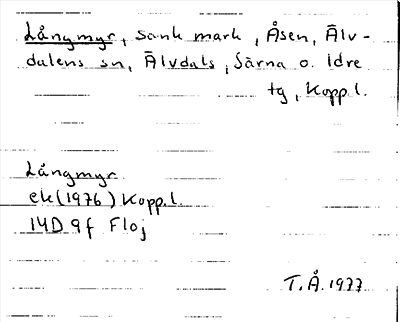 Långmyr, sank mark, Åsen, Älv-
dalens sn, Älvdals, Särna o. Idre
tg, Kopp.l.
Långmyr
ek (1976) Kopp.l.
14D 9f Floj
T.Å. 1977